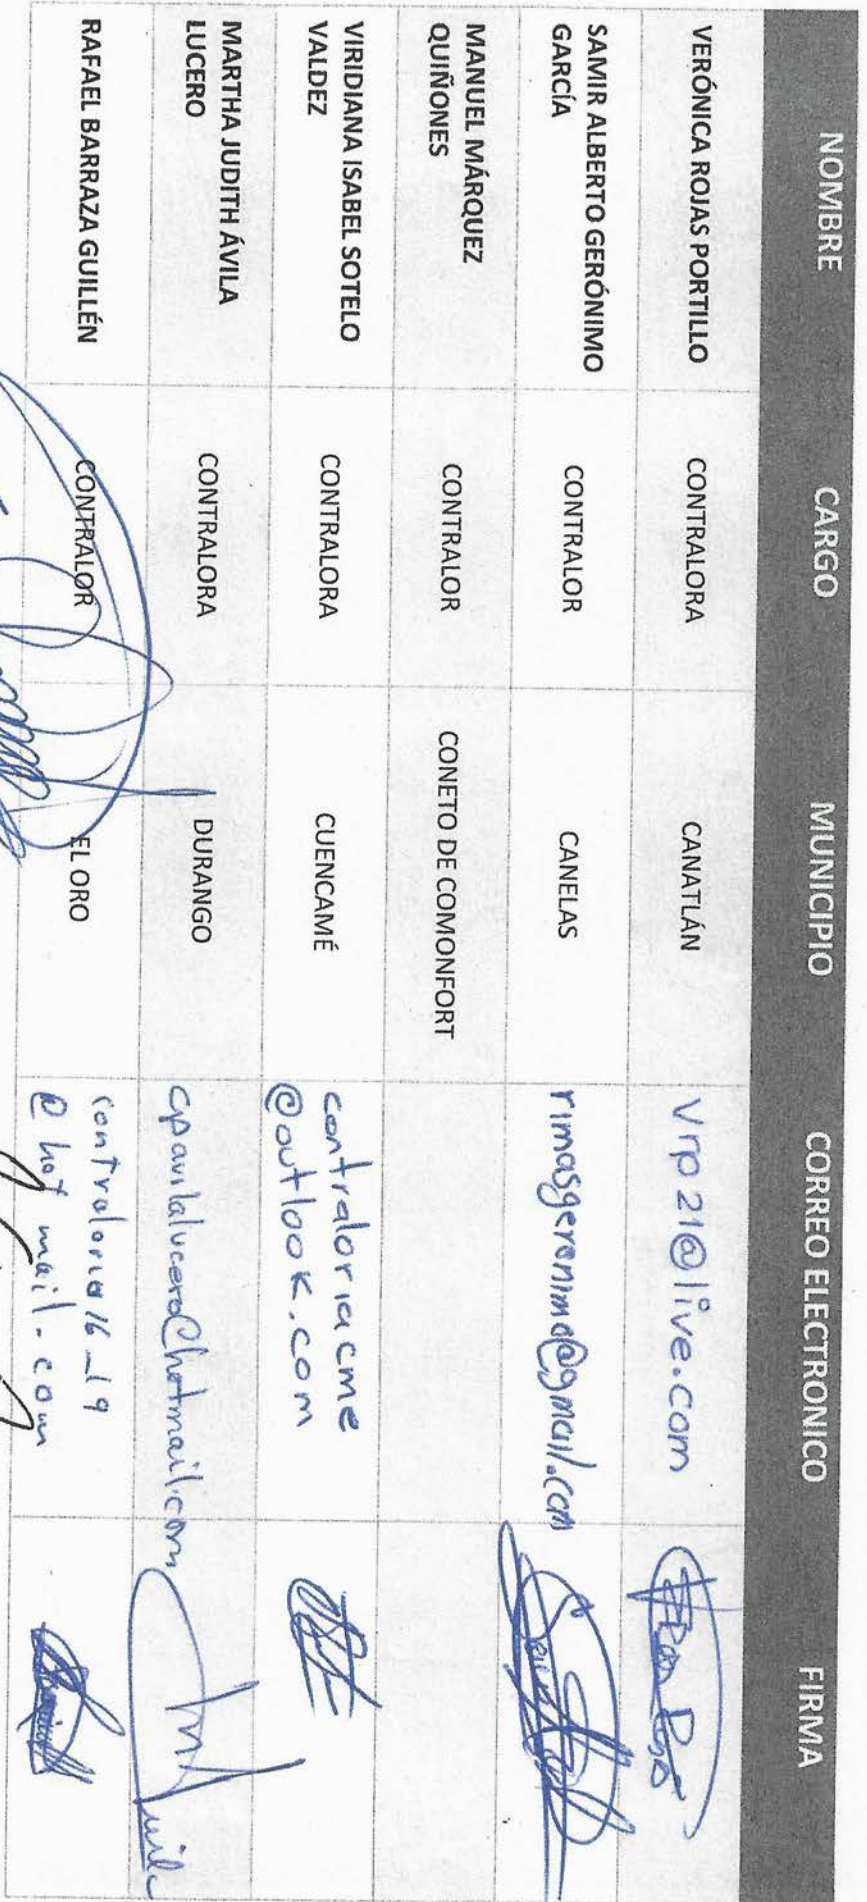 NOMBRE CARGO MUNICIPIO CORREO ELECTRONICO FIRMA
VERÓNICA ROJAS PORTILLO CONTRALORA CANATLÁN Vrp21@live.com
SAMIR ALBERTO GERÓNIMO
GARCÍA CONTRALOR CANELAS rimasgeronimo@gmail.com
MANUEL MÁRQUEZ
QUIÑONES CONTRALOR CONETO DE COMONFORT
VIRIDIANA ISABEL SOTELO
VALDEZ CONTRALORA CUENCAMÉ contraloriacme
@outlook.com
MARTHA JUDITH ÁVILA
LUCERO CONTRALORA DURANGO cpavilalucero@hotmail.com
RAFAEL BARRAZA GUILLÉN CONTRALOR EL ORO contraloria16_19
@hotmail.com